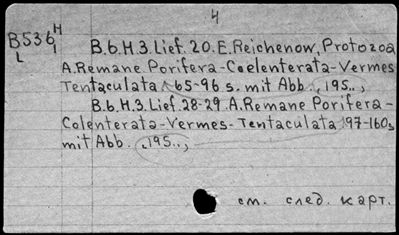 4
B536 H
L 1
B.6.H.3.Lief.20.E.Reichenow, Protozoa
A.Remane Porifera-Coelenterata-Vermes
Tentaculata 65-96 s. mit Abb. ,195..,
B.6.H.3.Lief.28-29 A.Remane Porifera-
Colenterata-Vermes-Tentaculata 97-160s
mit Abb. ,195..,
см. след. карт.